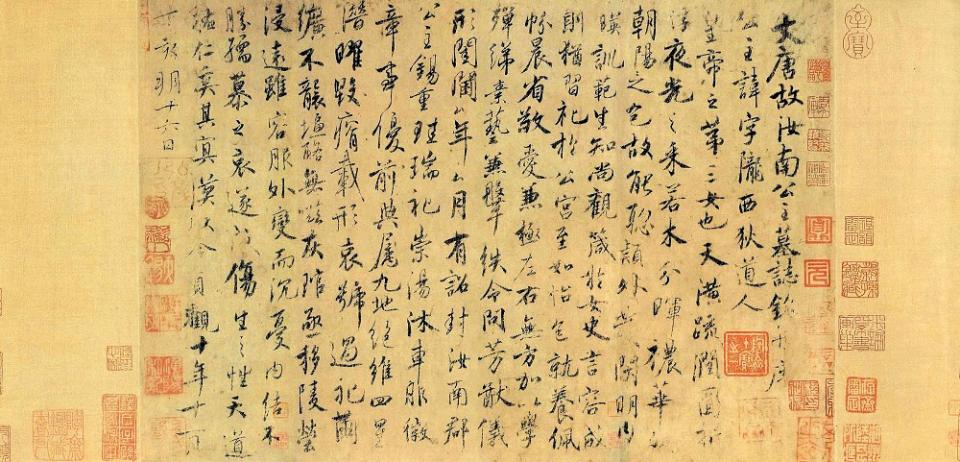 大唐故汝南公主墓誌銘并序
公主諱字隴西狄道人
皇帝之第三女也天潢疏潤圓折
浮夜光之采若木分暉穠華照
朝陽之色故能聰穎外發閑明內
暎訓範生知尚觀箴於女史言容成
則猶習礼於公宮至如怡色就養佩
帉晨省敬愛兼極左右無方加以學
殫綈素藝兼鞶紩令問芳猷儀
形閨閫△年△月有詔封汝南郡
公主錫重珪瑞礼崇湯沐車服徽
章事優前典屬九地絕維四星
潛曜毀瘠載形哀號過礼繭
纊不襲塩酪無嗞灰琯亟移陵塋
浸遠雖容服外變而沉憂內結不
勝孺慕之哀遂成傷生之性天道
祐仁奚其冥漠以今貞觀十年十一月
丁亥朔十六日